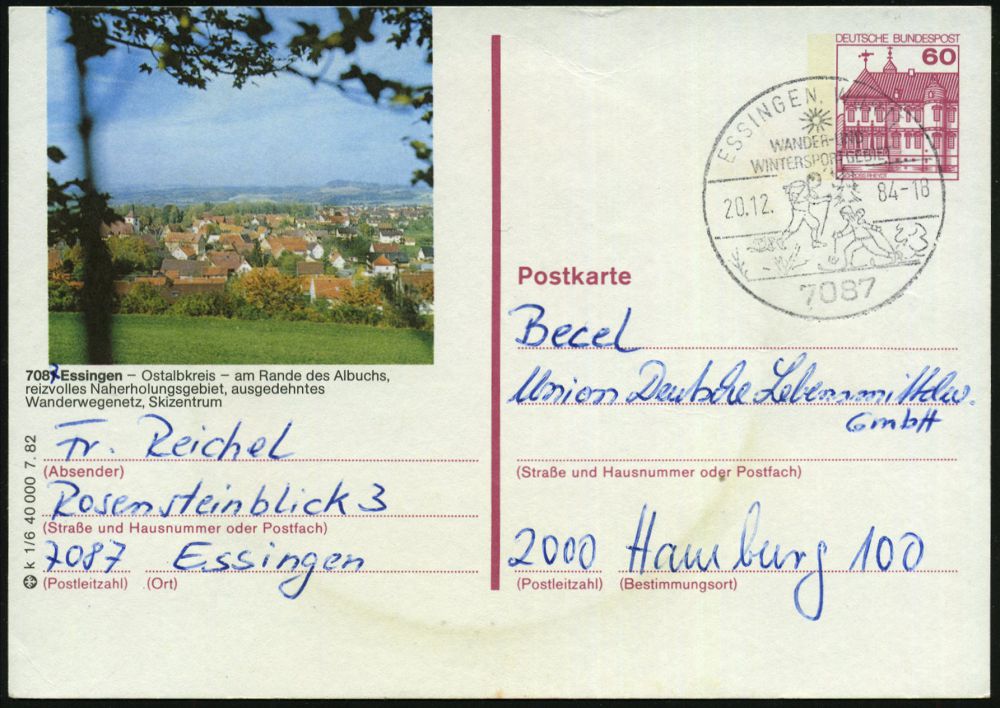 DEUTSCHE BUNDESPOST
60
ESSINGEN,
WANDER- UND
WINTERSPORTGEBIET
20.12. 84-18
7087
7087 Essingen – Ostalbkreis – am Rande des Albuchs,
reizvolles Naherholungsgebiet, ausgedehntes
Wanderwegenetz, Skizentrum
Fr. Reichel
(Absender)
Rosensteinblick 3
(Straße und Hausnummer oder Postfach)
7087 Essingen
(Postleitzahl) (Ort)
k 1/6 40 000 7.82
Postkarte
Becel
Union Deutsche Lebensmittelw.
GmbH
(Straße und Hausnummer oder Postfach)
2000 Hamburg 100
(Postleitzahl) (Bestimmungsort)